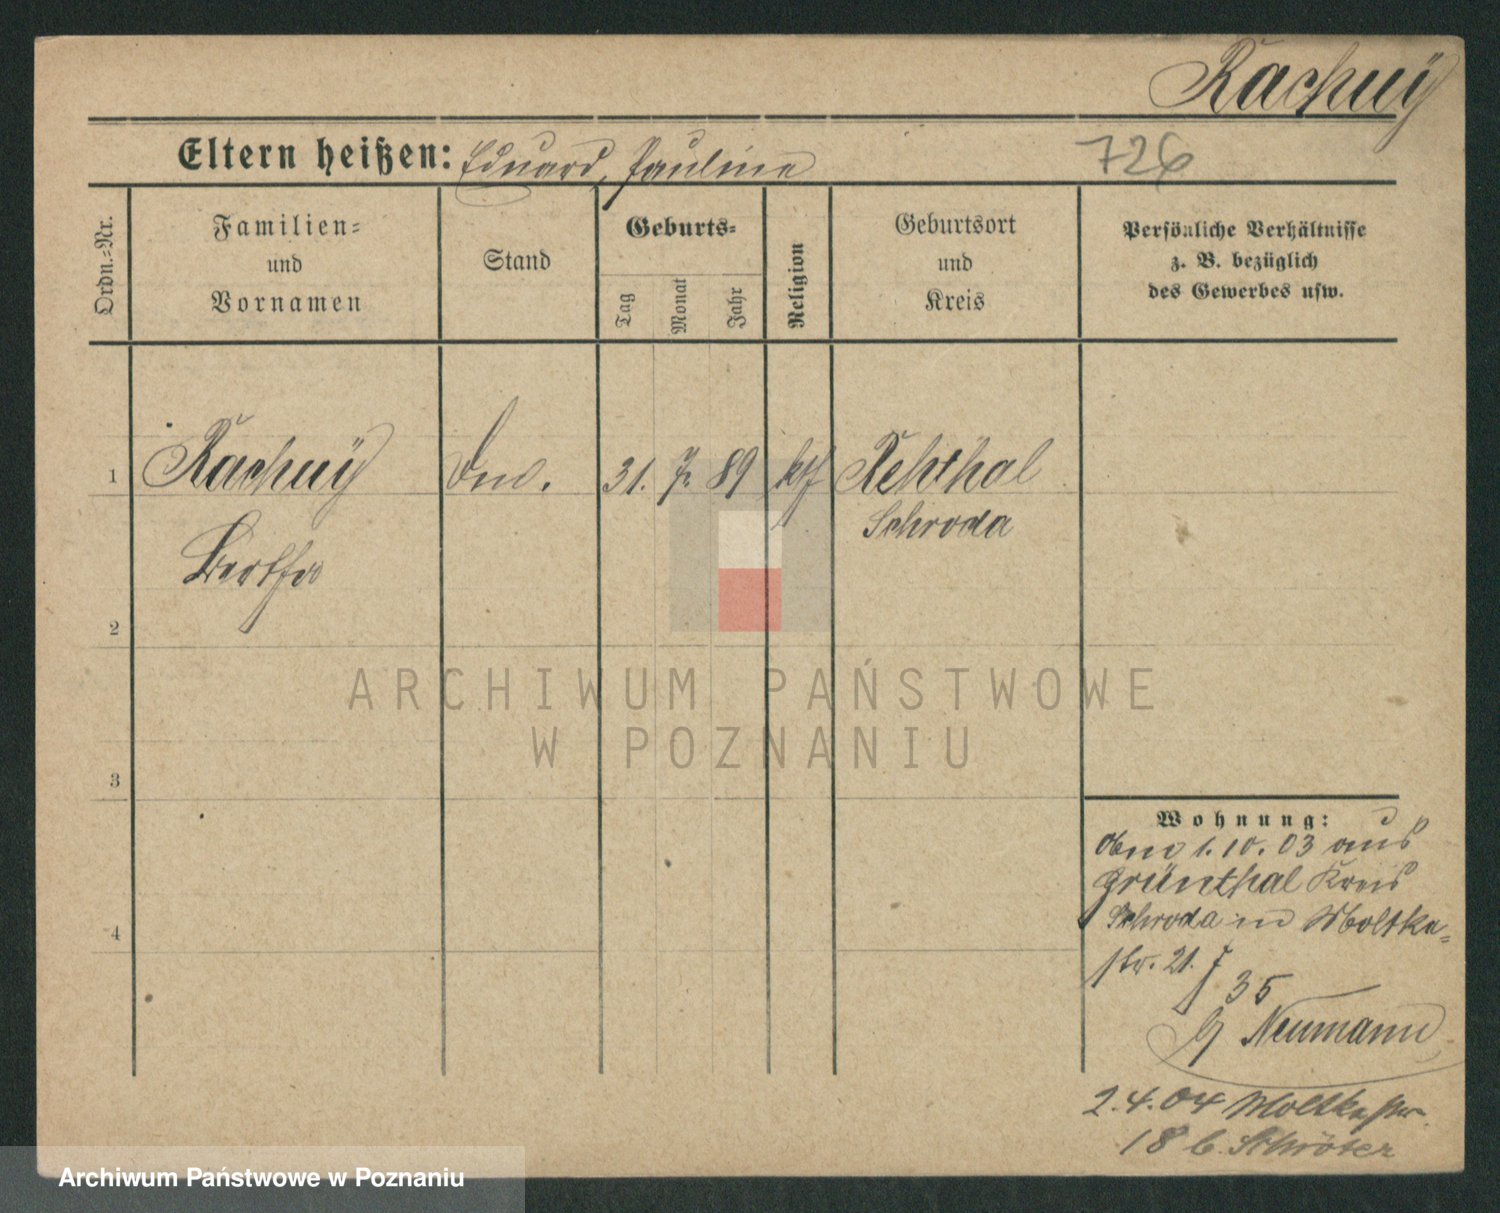 Rachuÿ
Eltern heißen: Eduard, Pauline
726
Ordn.=Nr.
Familien=
und
Vornamen
Stand
Geburts=
Tag
Monat
Jahr
Religion
Geburtsort
und
Kreis
Persönliche Verhältnisse
z. B. bezüglich
des Gewerbes usw.
1
Rachuÿ
31. 7. 89
Schroda
Bertha
2
ARCHIWUM PAŃSTWOWE
W POZNANIU
3
4
Wohnung:
1. 10. 03 aus
Grünthal Kreis
Schroda in Moltke=
str. 21. I
35
Neumann
2.4.04 Moltkestr.
18 b. Schröter
Archiwum Państwowe w Poznaniu